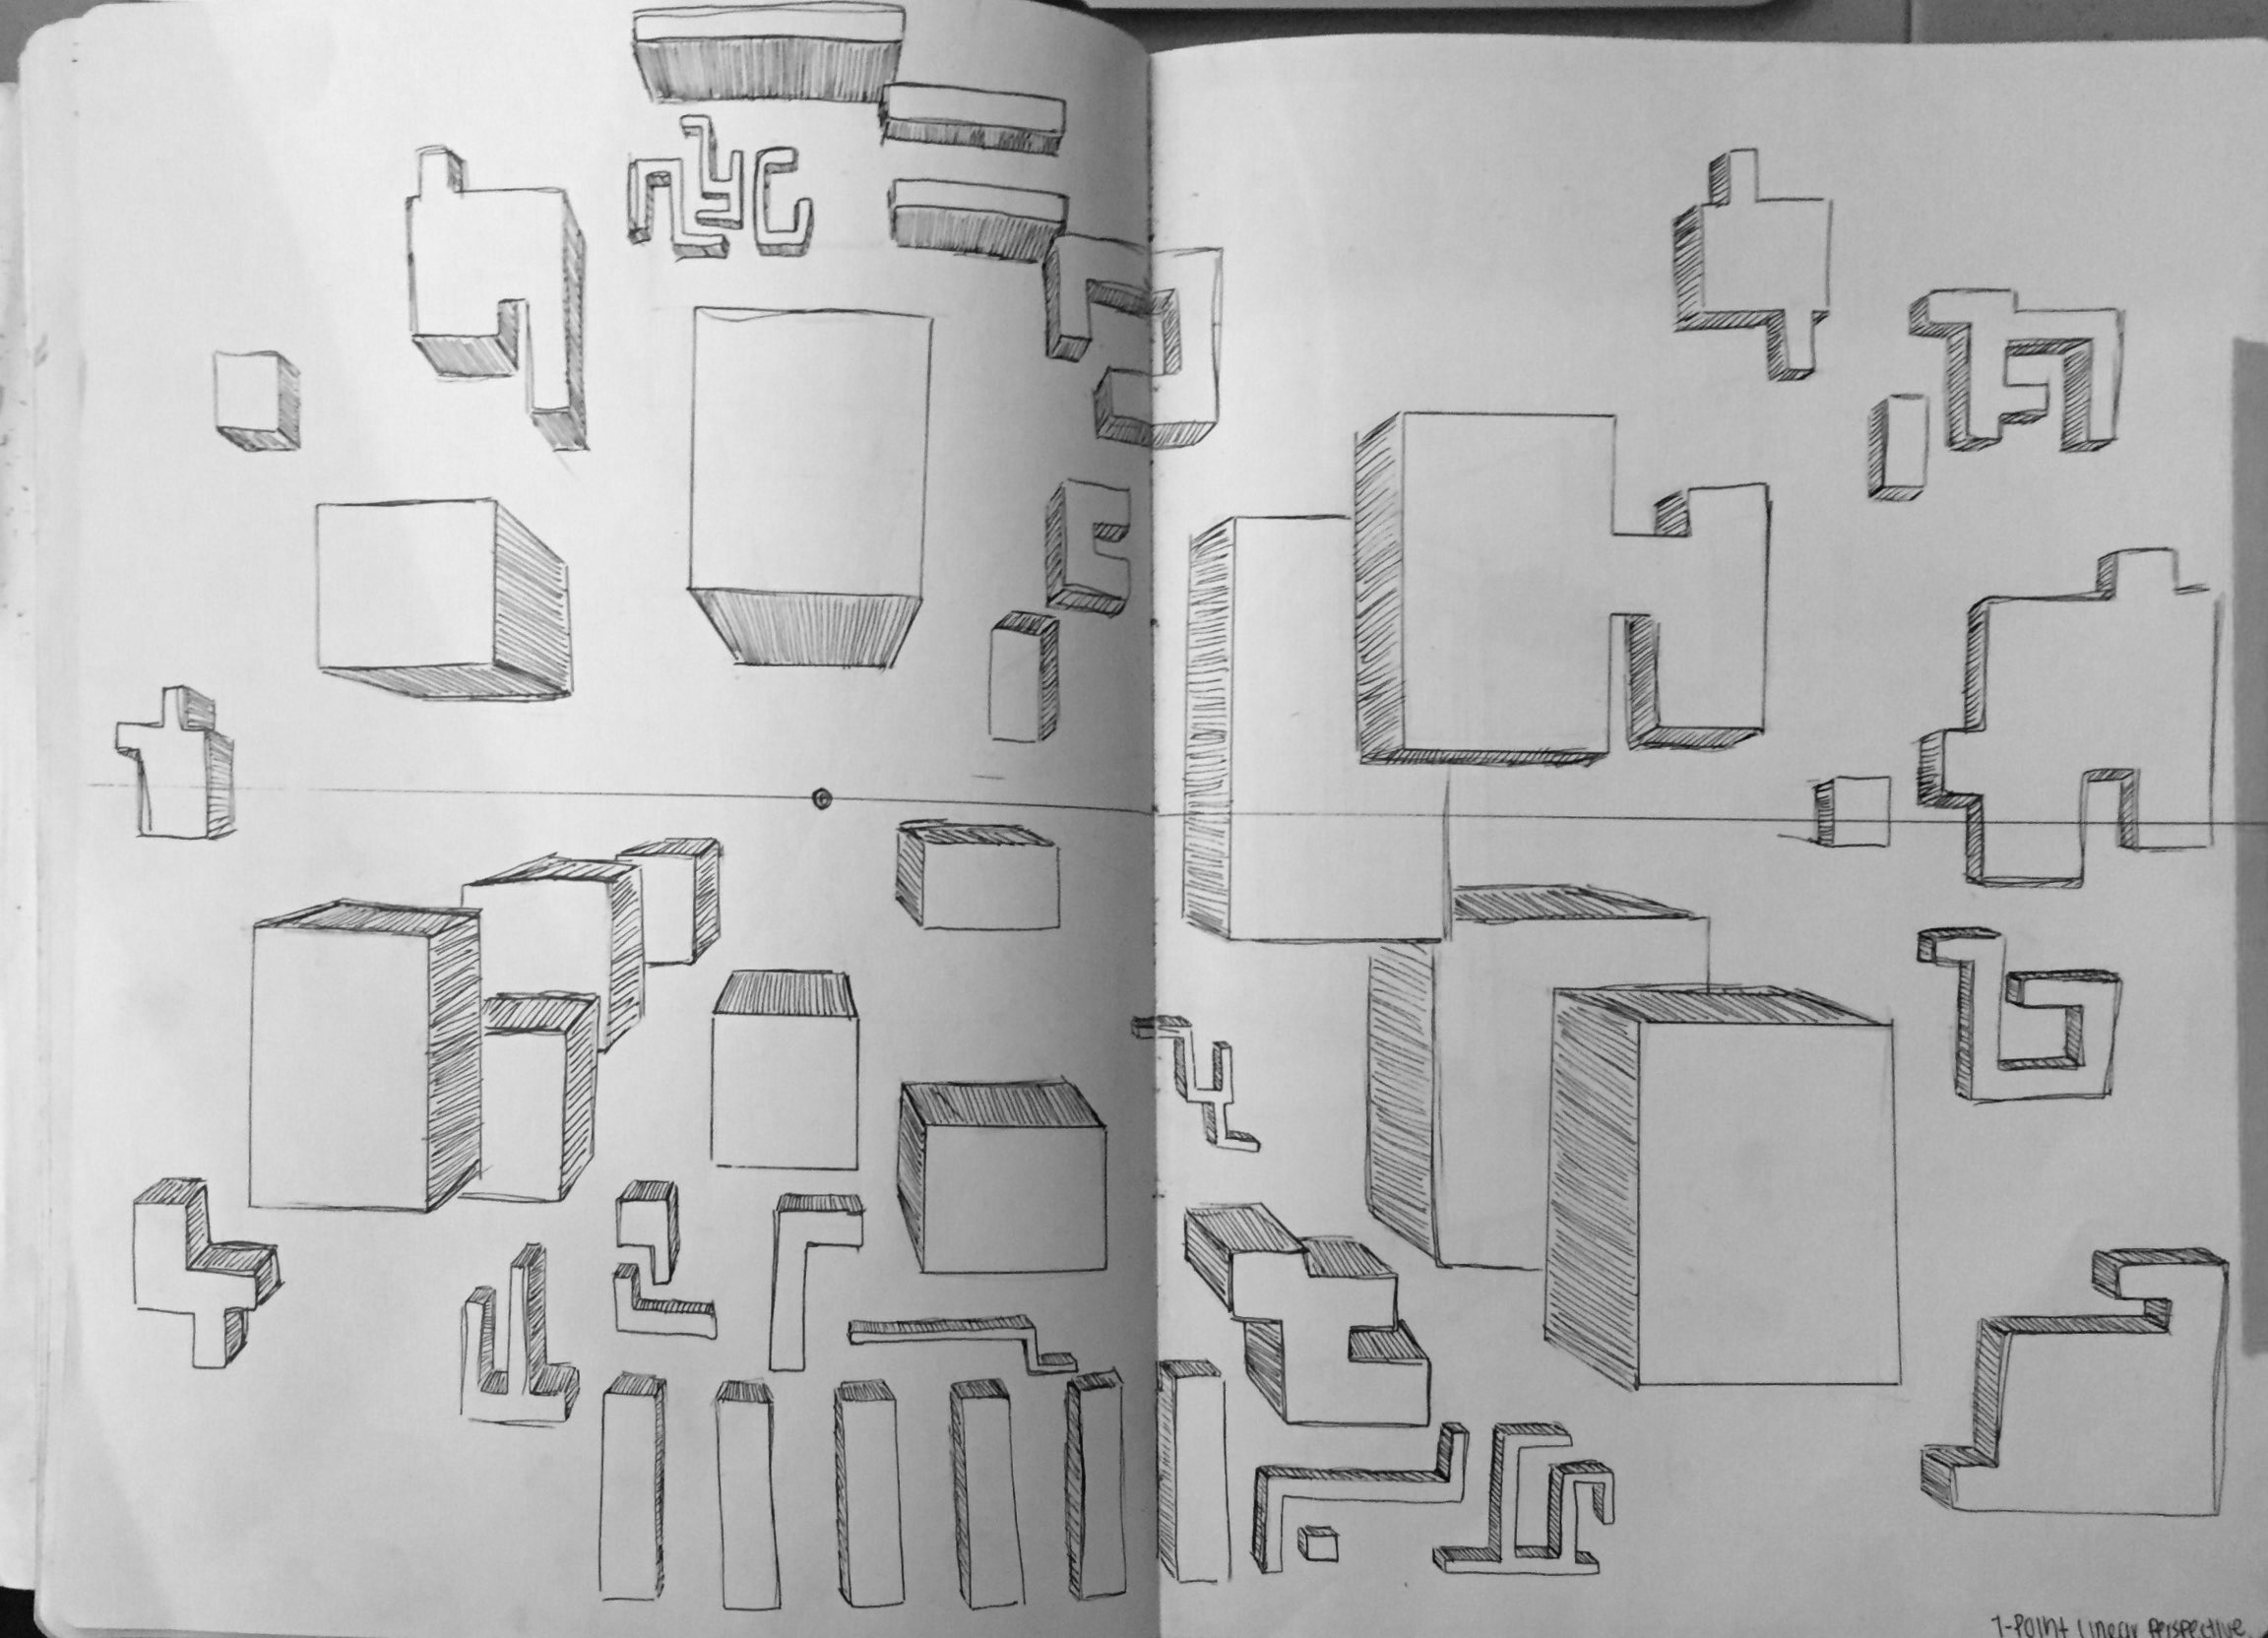 nyc
1-Point Linear Perspective